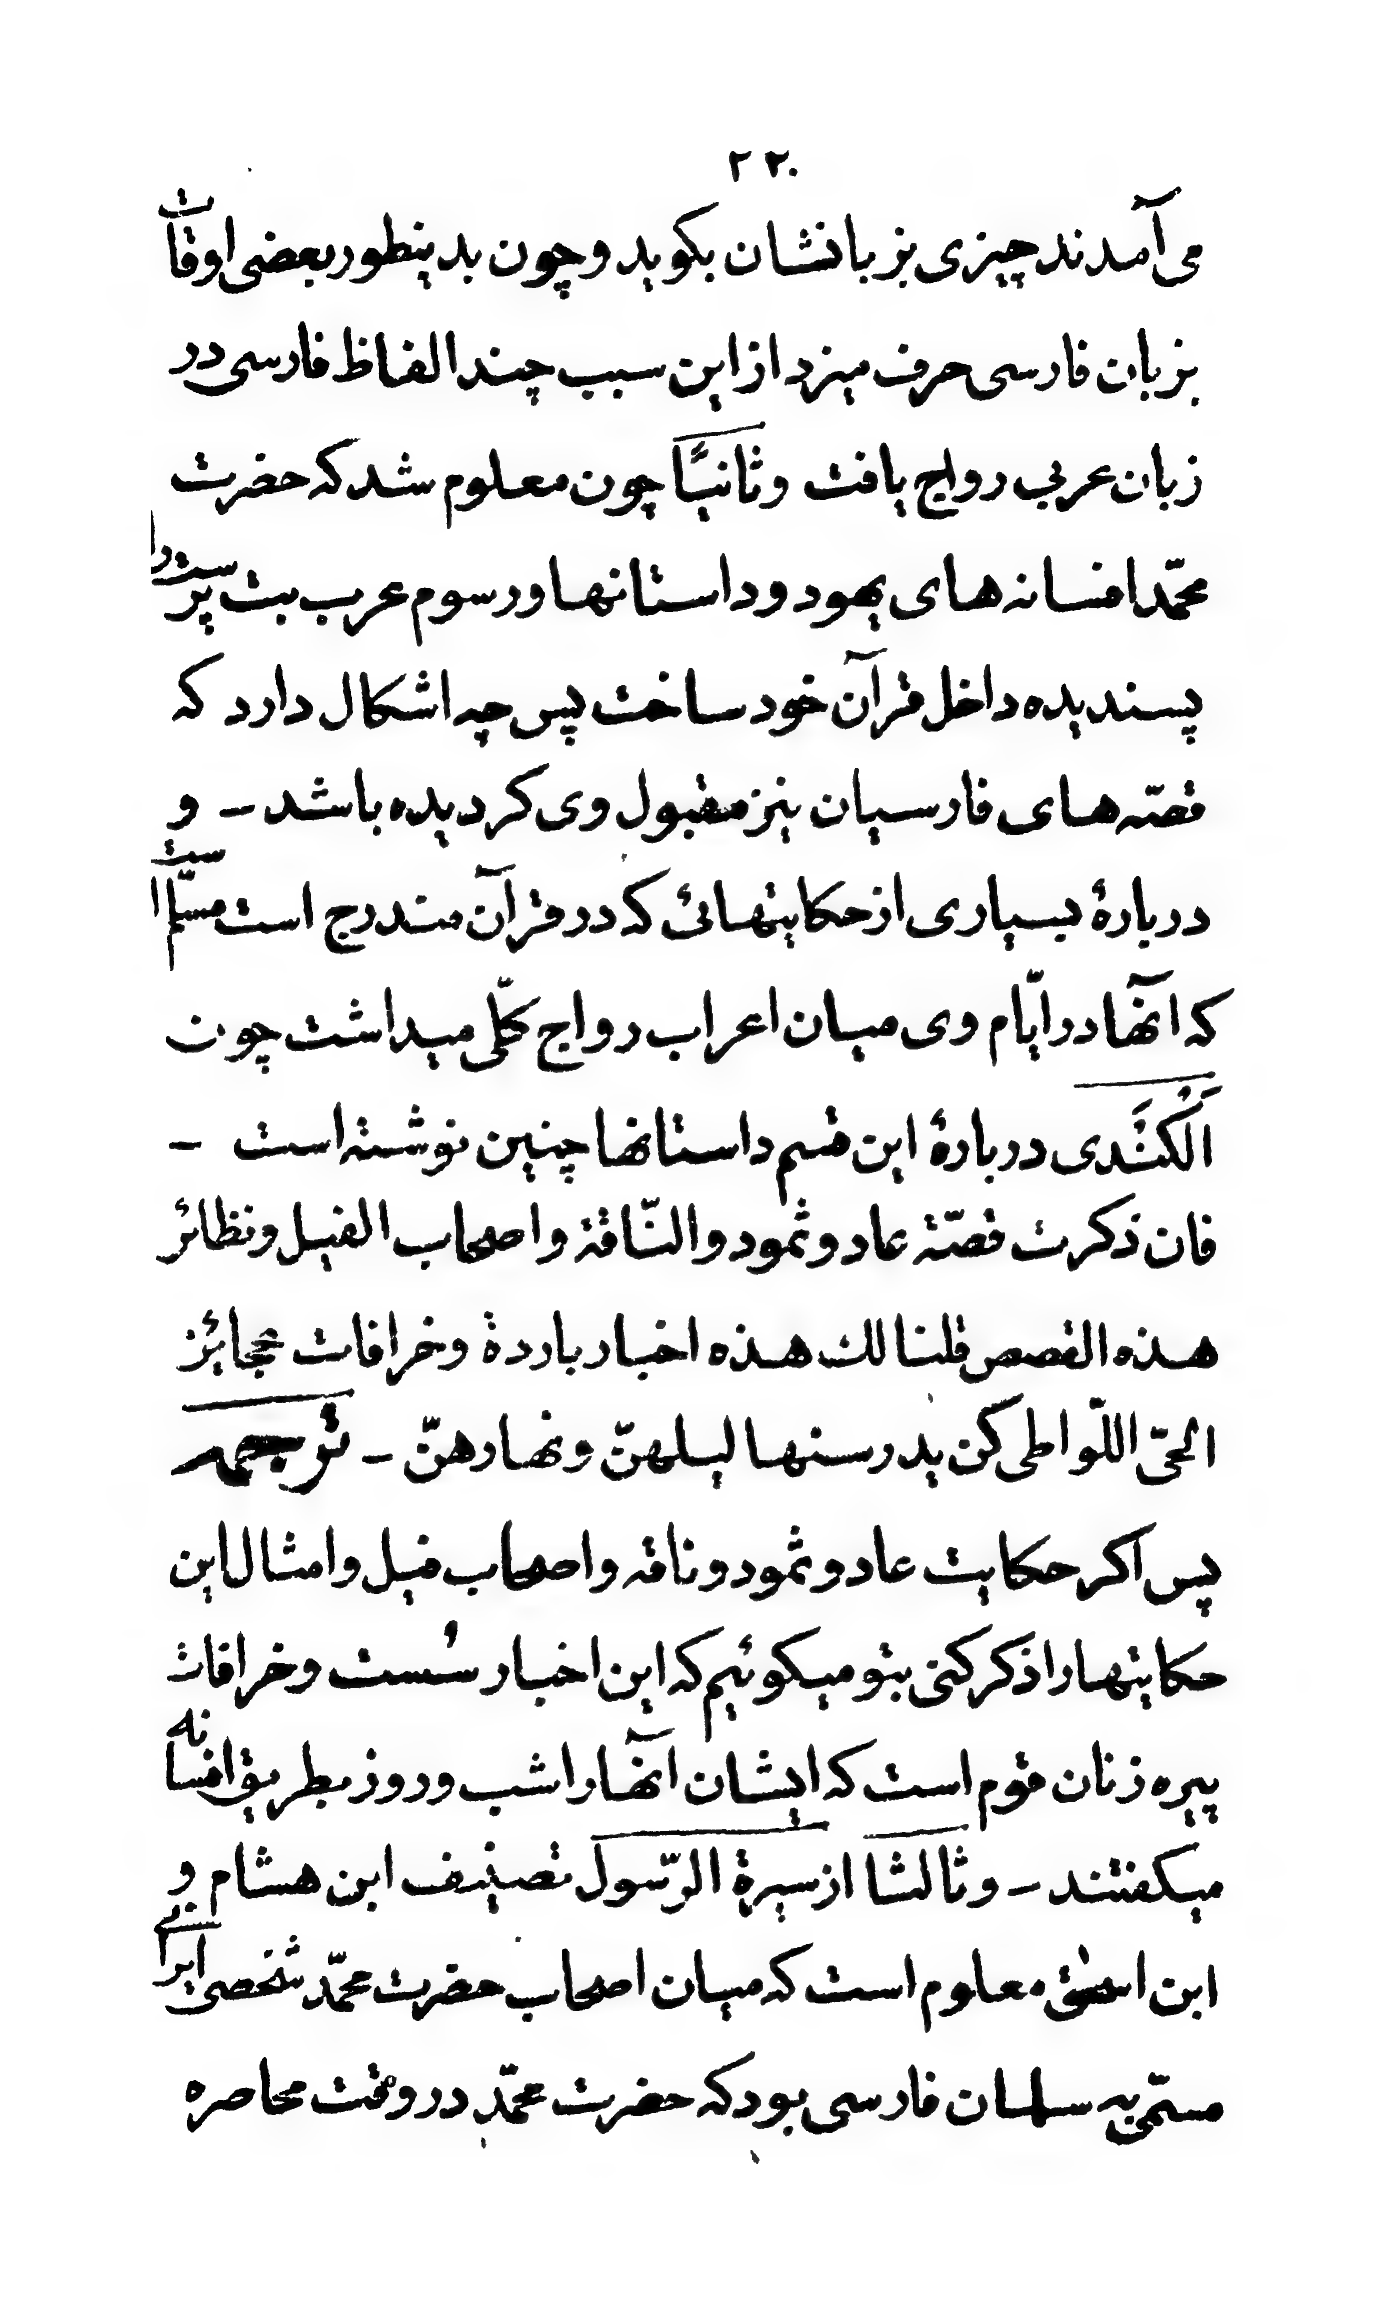 ۲۲۰
می‌آمدند چیزی بزبانشان بکوید و چون بدینطور بعضی اوقات
بزبان فارسی حرف میزد از این سبب چند الفاظ فارسی در
زبان عربی رواج یافت وثانیًا چون معلوم شد که حضرت
محمّد افسانه های یهود و داستانها و رسوم عرب بت پرست را
پسندیده داخل قرآن خود ساخت پس چه اشکال دارد که
قصّه های فارسیان نیز مقبول وی کردیده باشد ـ و
دربارهٔ بسیاری از حکایتهائی که در قرآن مندرج است مسلّم است
که آنها در ایّام وی میان اعراب رواج کلّی میداشت چون
اَلْکُنَدی دربارهٔ این قسم داستانها چنین نوشته است ـ
فان ذکرت قصّة عاد و ثمود والنّاقة واصحاب الفیل ونظائر
هذه القصص قلنا لك هذه اخبار باردة وخرافات عجایز
الحیّ اللّواطی کن یدرسنها لیلهنّ ونهارهنّ ـ ترجمه
پس اکر حکایت عاد و ثمود و ناقه واصحاب فیل و امثال این
حکایتها را ذکر کنی بتو میکوئیم که این اخبار سُست و خرافات
پیره زنان قوم است که ایشان آنها را شب و روز بطریق افسانه
میکفتند ـ وثالثا از سیرة الرّسول تصنیف ابن هشام و
ابن اسحٰق معلوم است که میان اصحاب حضرت محمّد شخصی ایرانی
مسمّی به سلمان فارسی بود که حضرت محمّد در وقت محاصره